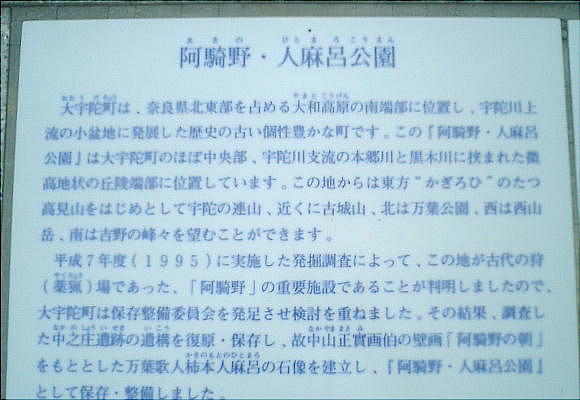 あきの ひとまろこうえん
阿騎野・人麻呂公園
おおうだちょう やまとこうげん
大宇陀町は、奈良県北東部を占める大和高原の南端部に位置し、宇陀川上
流の小盆地に発展した歴史の古い個性豊かな町です。この『阿騎野・人麻呂
公園』は大宇陀町のほぼ中央部、宇陀川支流の本郷川と黒木川に挟まれた微
高地状の丘陵端部に位置しています。この地からは東方“かぎろひ”のたつ
高見山をはじめとして宇陀の連山、近くに古城山、北は万葉公園、西は西山
岳、南は吉野の峰々を望むことができます。
平成7年度(1995)に実施した発掘調査によって、この地が古代の狩
やくりょう
(薬猟)場であった、「阿騎野」の重要施設であることが判明しましたので、
大宇陀町は保存整備委員会を発足させ検討を重ねました。その結果、調査し
なかのしょういせき いこう なかやままさみ
た中之庄遺跡の遺構を復原・保存し、故中山正實画伯の壁画『阿騎野の朝』
かきのもとのひとまろ
をもととした万葉歌人柿本人麻呂の石像を建立し、『阿騎野・人麻呂公園』
として保存・整備しました。